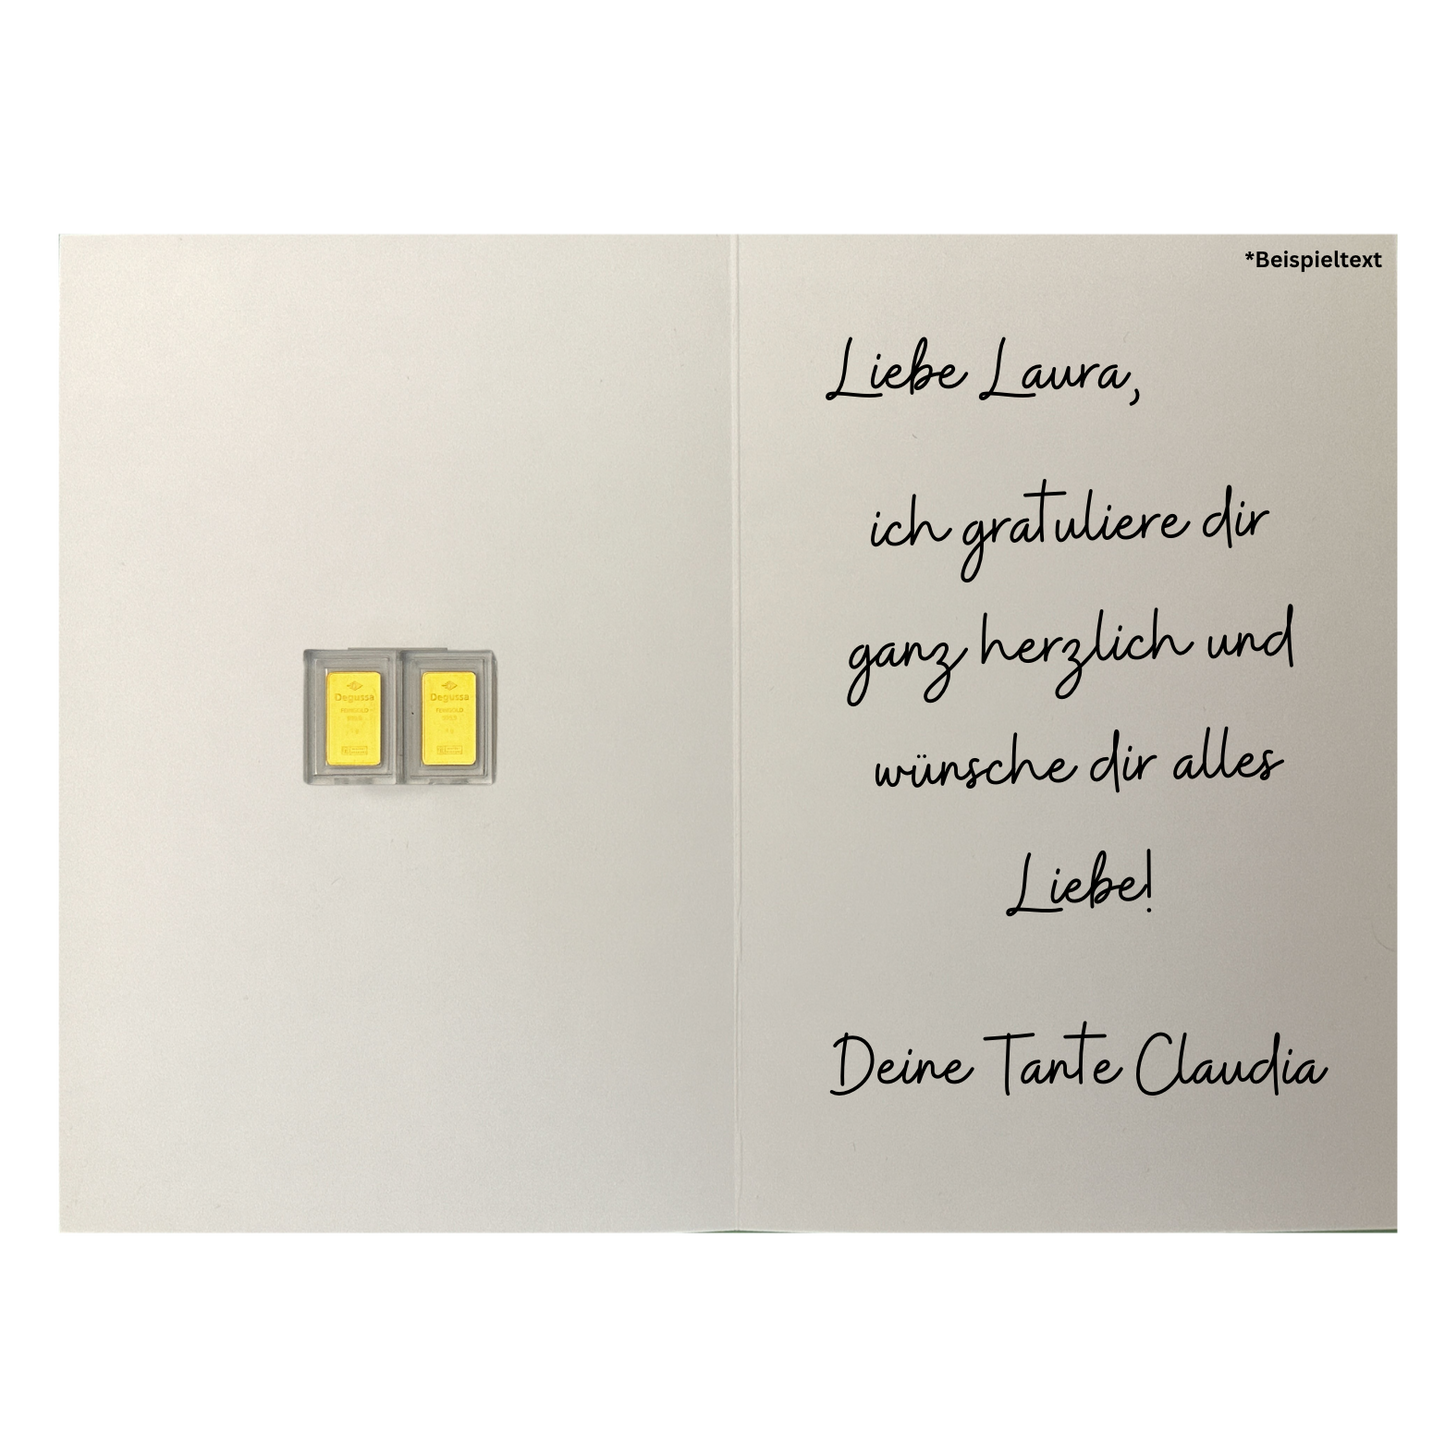 *Beispieltext
Liebe Laura,
ich gratuliere dir
ganz herzlich und
wünsche dir alles
Liebe!
Deine Tante Claudia
Degussa
FEINGOLD
Degussa
FEINGOLD